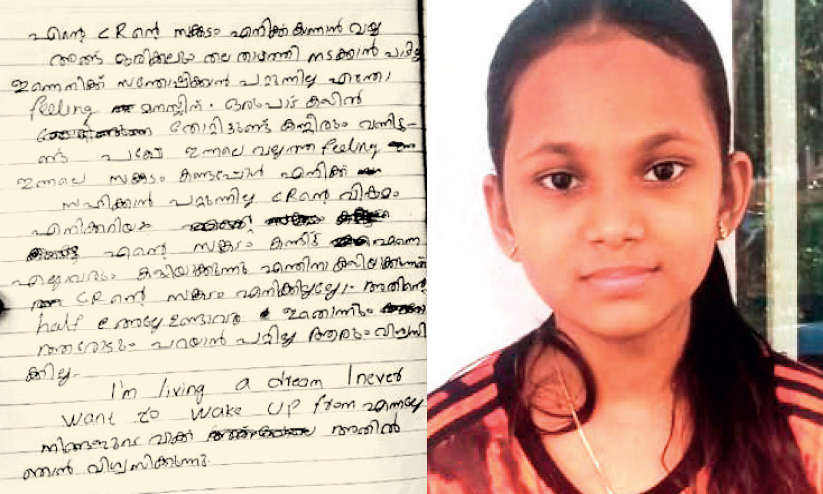 എന്റെ CR ന്റെ സങ്കടം എനിക്ക് കാണാൻ വയ്യ
അങ്ങ് ഒരിക്കലും തല താഴ്ത്തി നടക്കാൻ പാടില്ല
ഇന്നെനിക്ക് സന്തോഷിക്കാൻ പറ്റുന്നില്ല എന്തോ
feeling മനസ്സിന്. ഒരുപാട് കളിൽ
തോറ്റിട്ടുണ്ട് കണ്ണീരും വന്നിട്ടു-
ണ്ട് പക്ഷേ ഇന്നലെ വല്ലാത്ത feeling
ഇന്നലെ സങ്കടം കണ്ടപ്പോൾ എനിക്ക്
സഹിക്കാൻ പറ്റുന്നില്ല CR ന്റെ വിഷമം
എനിക്കറിയാം
എന്റെ സങ്കടം കണ്ടിട്ട് എന്നെ
എല്ലാവരും കളിയാക്കുന്നു എന്തിനാ കളിയാക്കുന്നത്
CR ന്റെ സങ്കടം എനിക്കില്ലല്ലോ. അതിന്റെ
half അല്ലേ ഉണ്ടാവൂ ഇതൊന്നും
ആരോടും പറയാൻ പറ്റില്ല ആരും വിശ്വസി
ക്കില്ല.
I'm living a dream I never
want to wake up from എന്നല്ലേ
നിങ്ങളുടെ വാക്ക് അതിൽ
ഞാൻ വിശ്വസിക്കുന്നു.